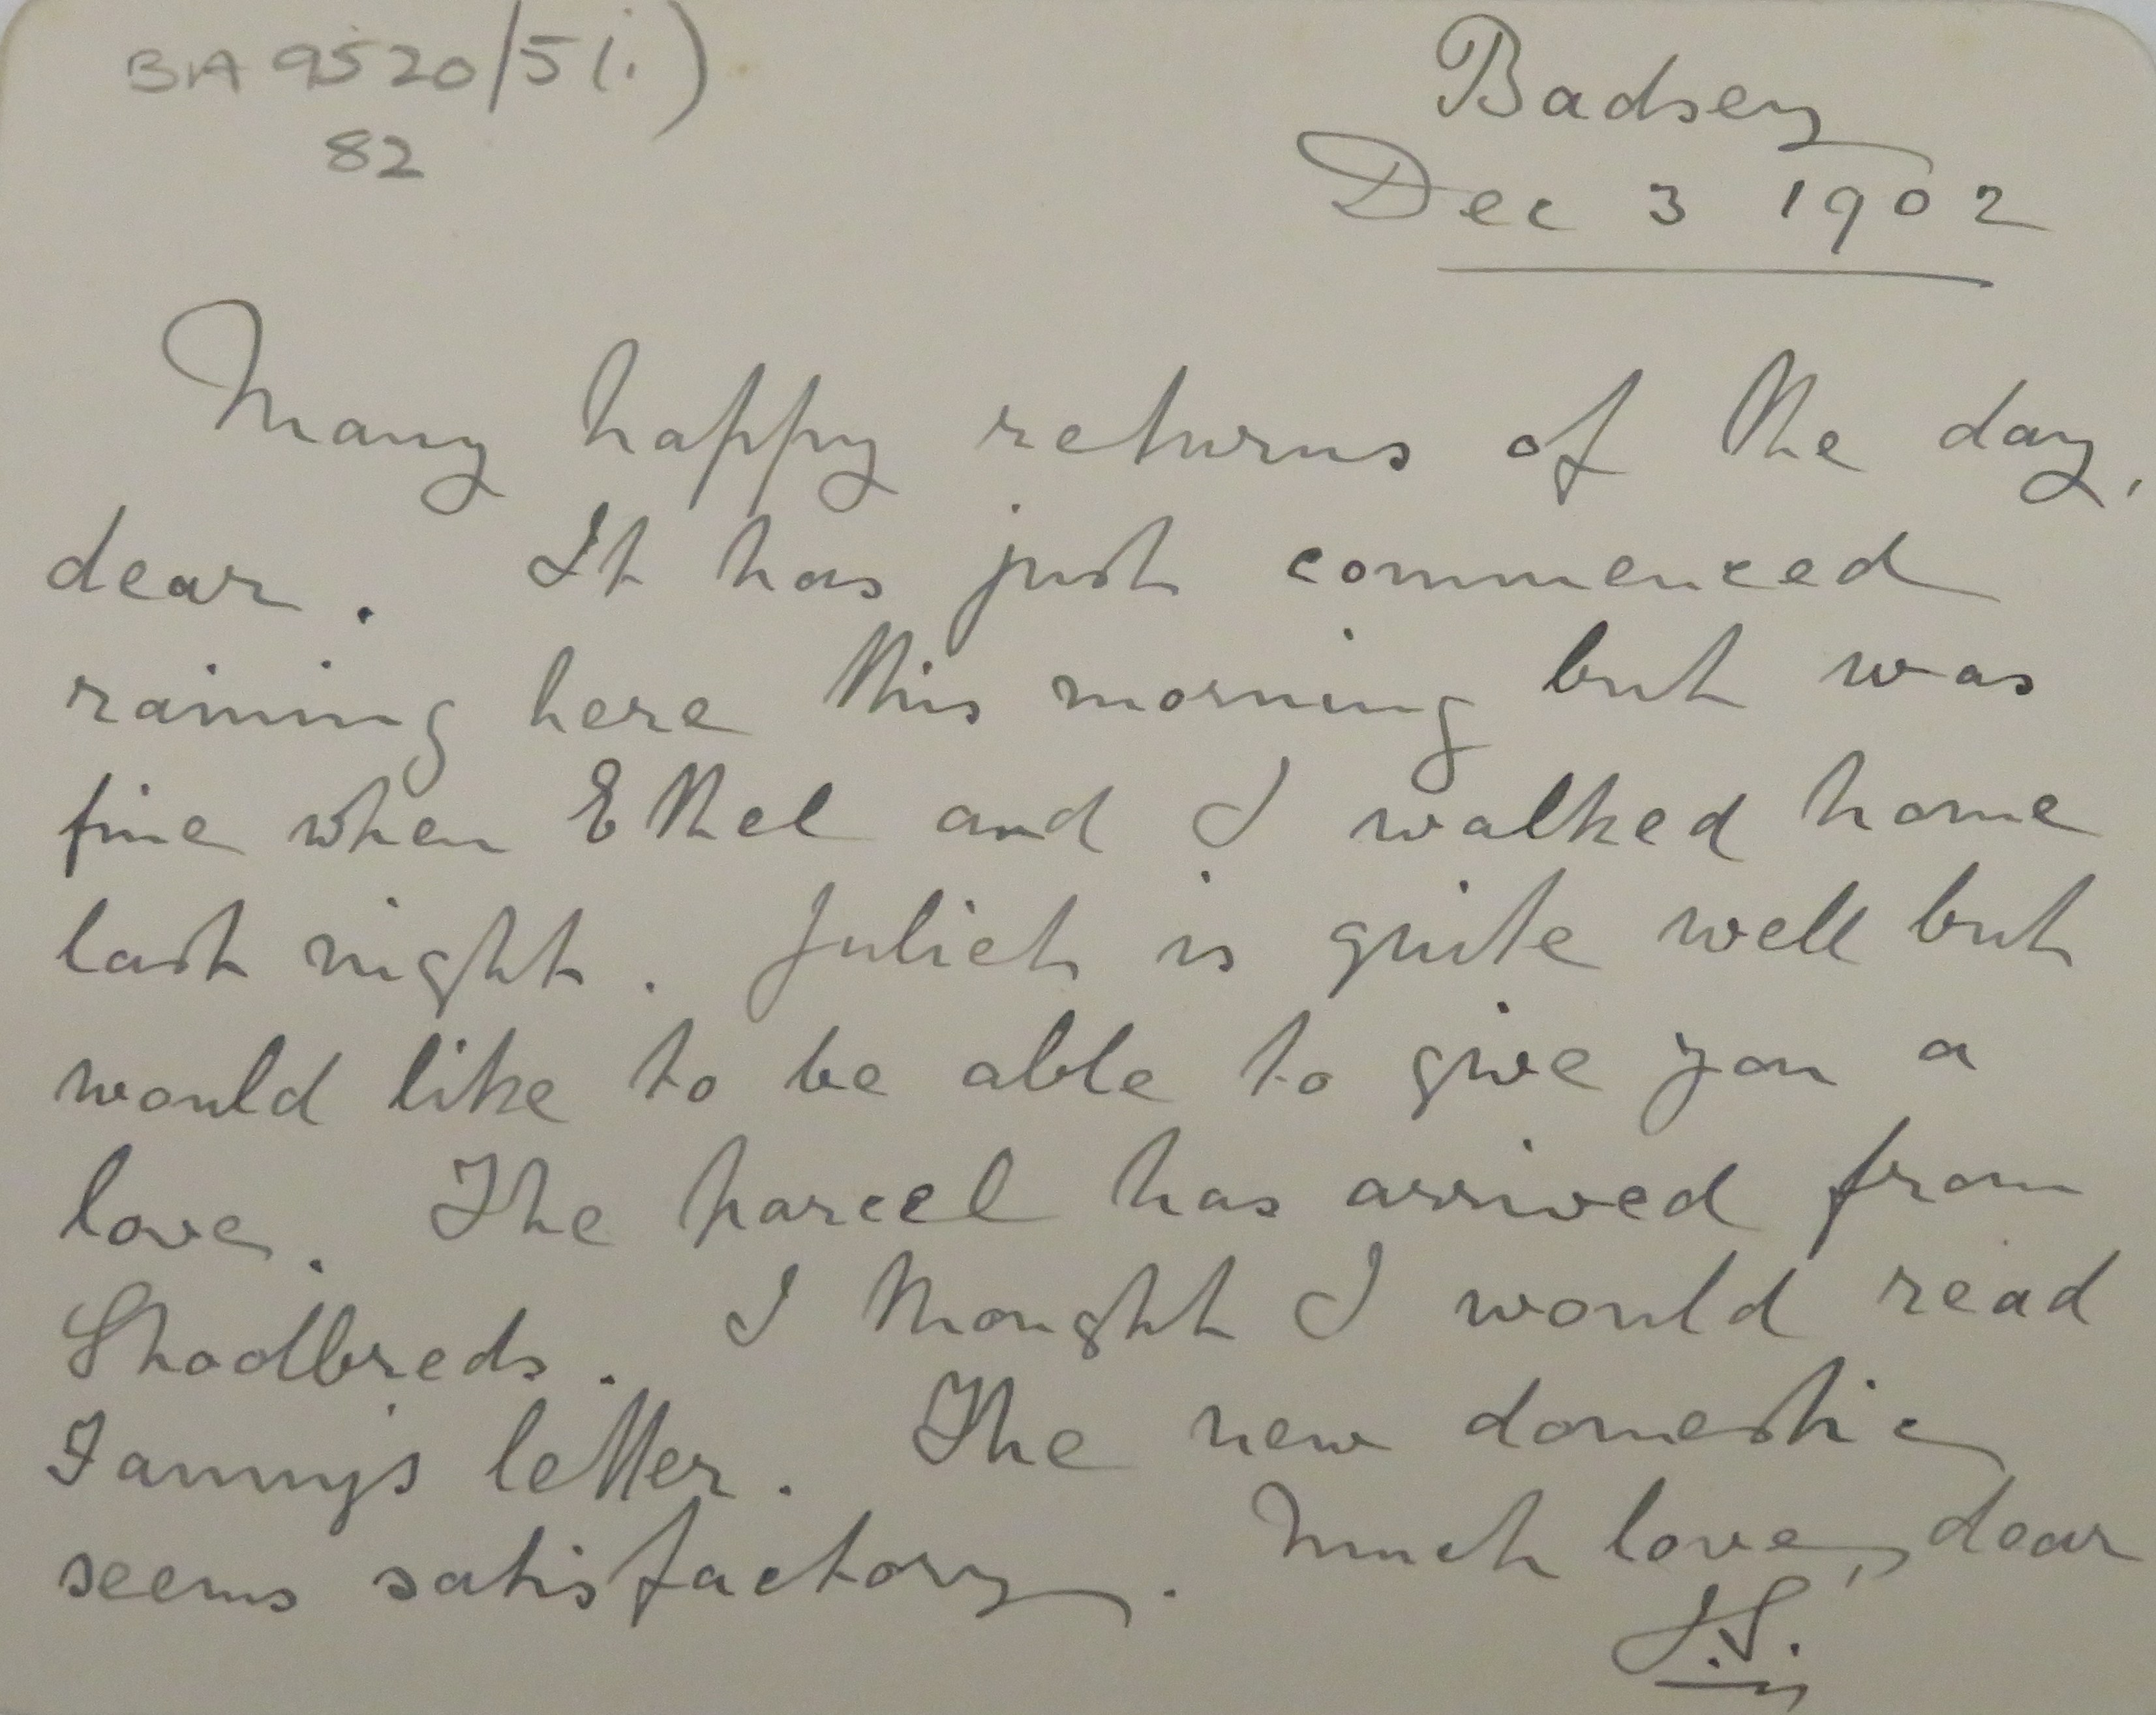 BA 9520/5(i.)
82
Badsey
Dec 3 1902
Many happy returns of the day,
dear. It has just commenced
raining here this morning but was
fine when Ethel and I walked home
last night. Juliet is quite well but
would like to be able to give you a
love. The parcel has arrived from
Shoolbreds. I thought I would read
Fanny's letter. The new domestic
seems satisfactory. Much love, dear
J.S.